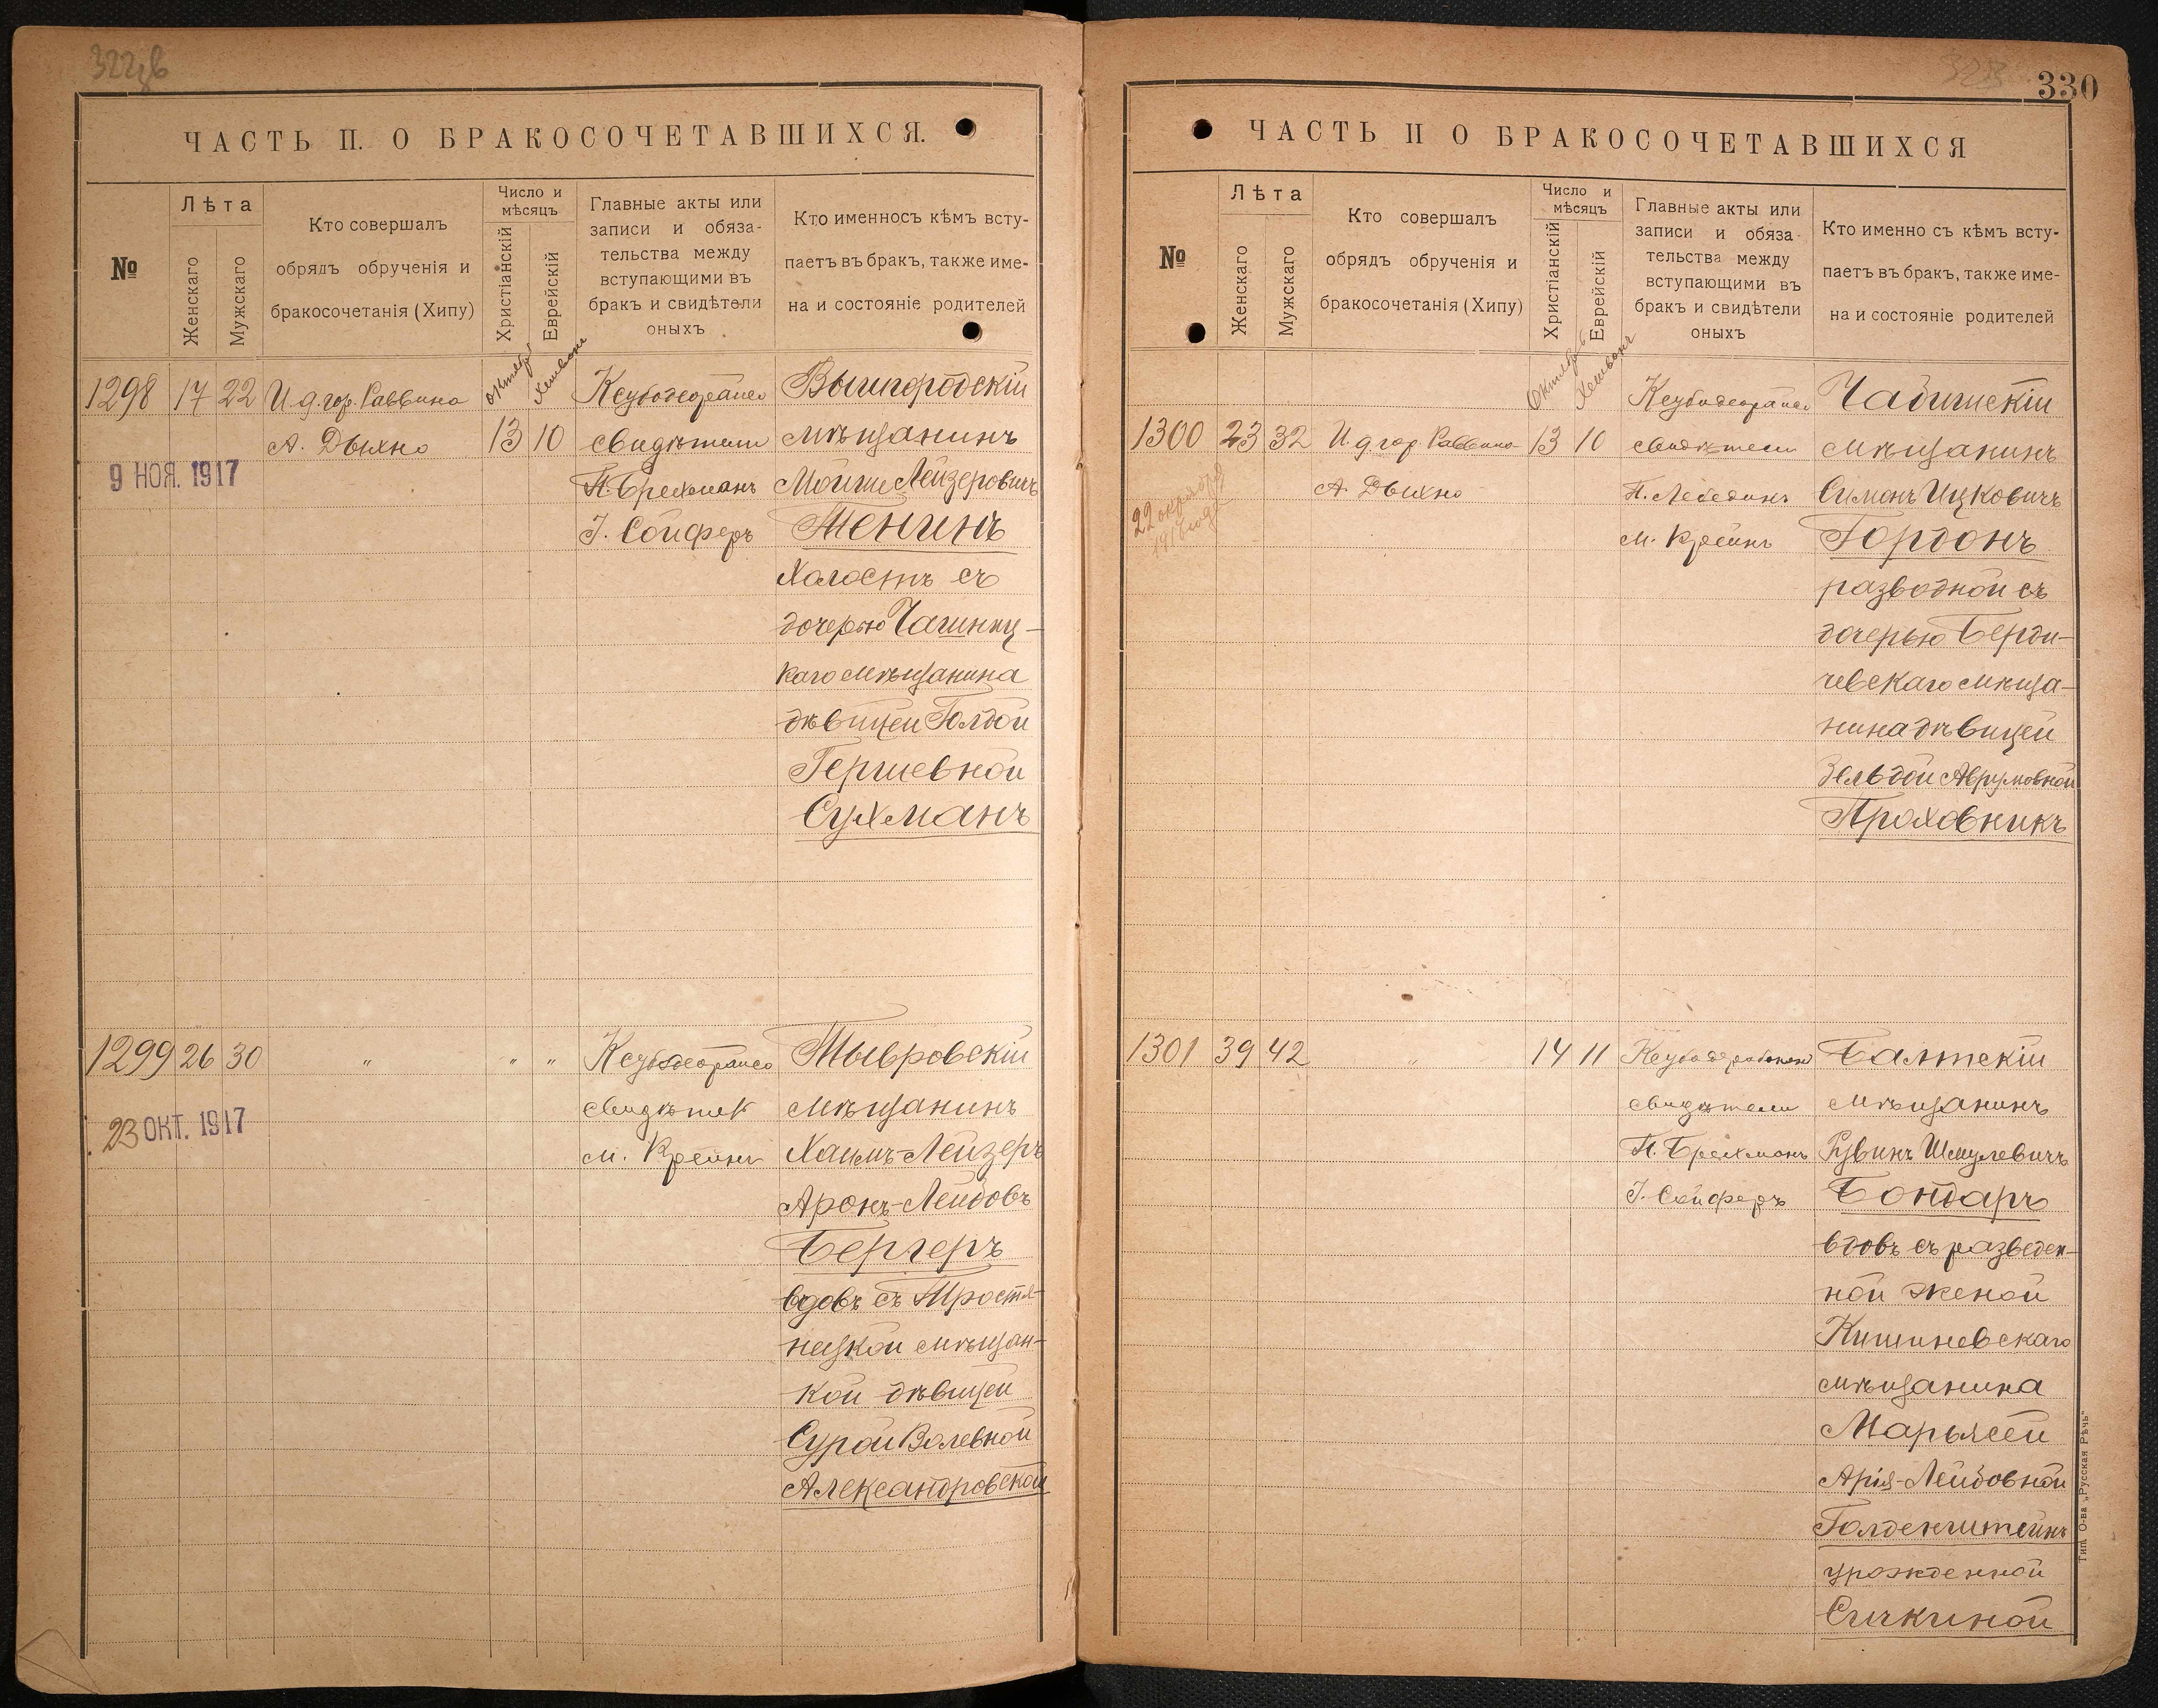 ЧАСТЬ II. О БРАКОСОЧЕТАВШИХСЯ.
№
Лѣта
Женскаго
Мужскаго
Кто совершалъ
обрядъ обрученія и
бракосочетанія (Хипу)
Число и
мѣсяцъ
Христіанскій
Еврейскій
Главные акты или
записи и обяза-
тельства между
вступающими въ
бракъ и свидѣтели
оныхъ
Кто именносъ кѣмъ всту-
паетъ въ бракъ, также име-
на и состояніе родителей
Октябрь
Хешвонъ
1298 17 22 И.д.гор. Раввина
А. Дыхно
13 10
9 НОЯ. 1917
свидѣтели
П. Брехманъ
І. Сойферъ
Вышгородскій
мѣщанинъ
Мойше Лейзеровичъ
Тенинъ
Холостъ съ
дочерью
каго мѣщанина
дѣвицей Голдой
Гершевной
Сухманъ
1299 26 30 " " "
23 ОКТ. 1917
М. Крейнъ
Тывровскій
мѣщанинъ
Хаимъ-Лейзеръ
Аронъ-Лейбовъ
Бергеръ
вдовъ съ Тростя-
нецкой мѣщан-
кой дѣвицей
Сурой Волевной
Александровской
330
ЧАСТЬ II О БРАКОСОЧЕТАВШИХСЯ
№
Лѣта
Женскаго
Мужскаго
Кто совершалъ
обрядъ обрученія и
бракосочетанія (Хипу)
Число и
мѣсяцъ
Христіанскій
Еврейскій
Главные акты или
записи и обяза-
тельства между
вступающими въ
бракъ и свидѣтели
оныхъ
Кто именно съ кѣмъ всту-
паетъ въ бракъ, также име-
на и состояніе родителей
Октябрь
Хешвонъ
1300 23 32 И.д.гор. Раввина 13 10
А. Дыхно
22 октября
свидѣтели
П. Лебединъ
М. Крейнъ
мѣщанинъ
Симонъ Ицковичъ
Гордонъ
разводной съ
дочерью Берди-
чевскаго мѣща-
нина дѣвицей
Зельдой Аврумовной
Проховникъ
1301 39 42 " 14 11
свидѣтели
П. Брехманъ
І. Сойферъ
Балтскій
мѣщанинъ
Рувинъ Шмулевичъ
Бондарь
вдовъ съ разведен-
ной женой
Кишиневскаго
мѣщанина
Марьясей
Арія-Лейбовной
Голденштейнъ
урожденной
Сичкиной
Тип. О-ва „Русская Рѣчь“